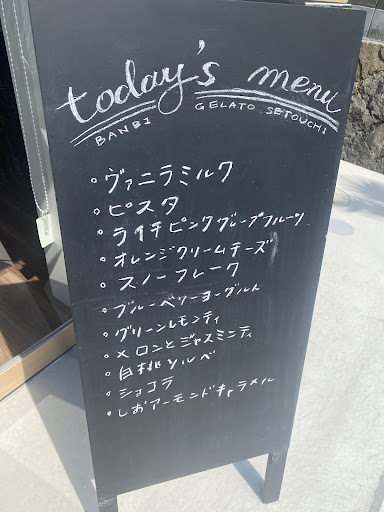 today's menu
BANBI GELATO SETOUCHI
・ヴァニラミルク
・ピスタ
・ライチピンクグレープフルーツ
・オレンジクリームチーズ
・スノーフレーク
・ブルーベリーヨーグルト
・グリーンレモンティ
・メロンとジャスミンティ
・白桃ソルベ
・ショコラ
・しおアーモンドキャラメル